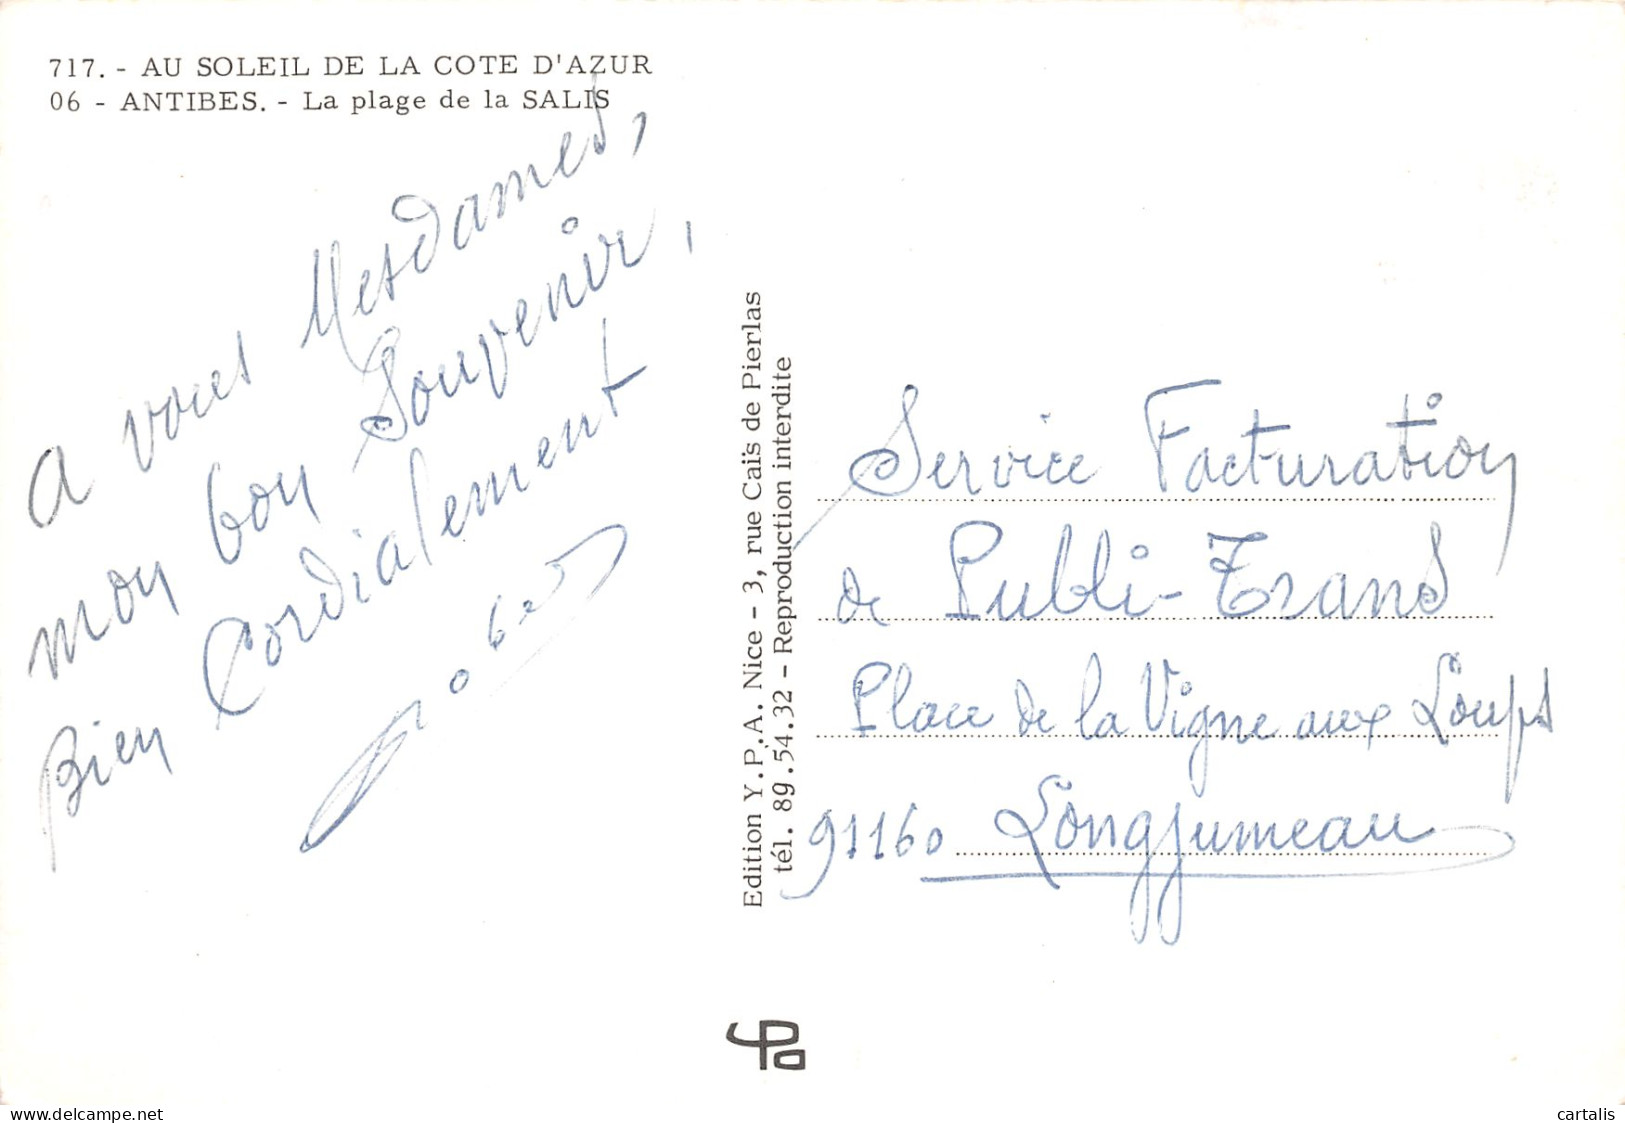 717. - AU SOLEIL DE LA COTE D'AZUR
06 - ANTIBES. - La plage de la SALIS
a vous Mesdames,
mon bon Souvenir,
Bien Cordialement
Edition Y.P.A. Nice - 3, rue Caïs de Pierlas
tél. 89.54.32 - Reproduction interdite
Service Facturation
de Publi-Trans
Place de la Vigne aux Loups
91160 Longjumeau
www.delcampe.net
cartalis